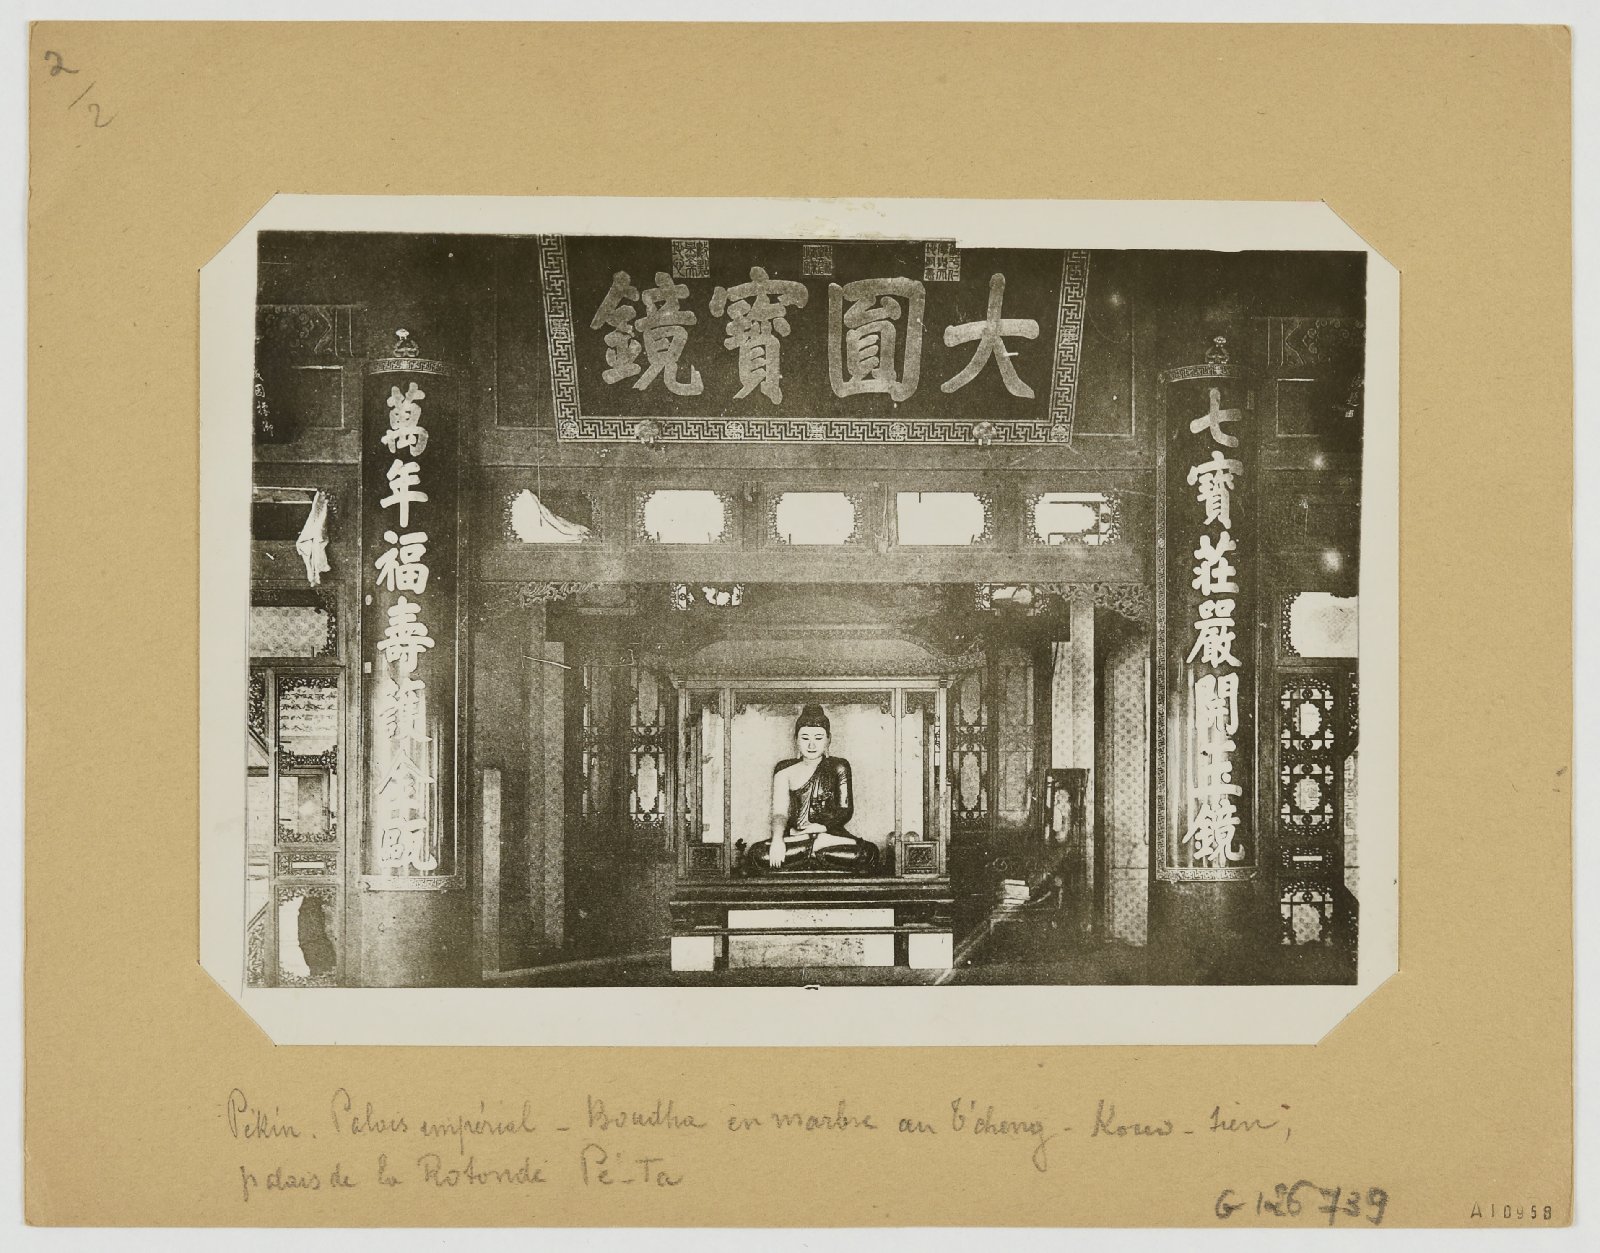 2/2
大圓寶鏡
七寶莊嚴開玉鏡
萬年福壽護金甌
Pékin. Palais impérial - Boudha en marbre au T'cheng - Kouo - tien;
palais de la Rotonde Pé-Ta
G 126739
A10958